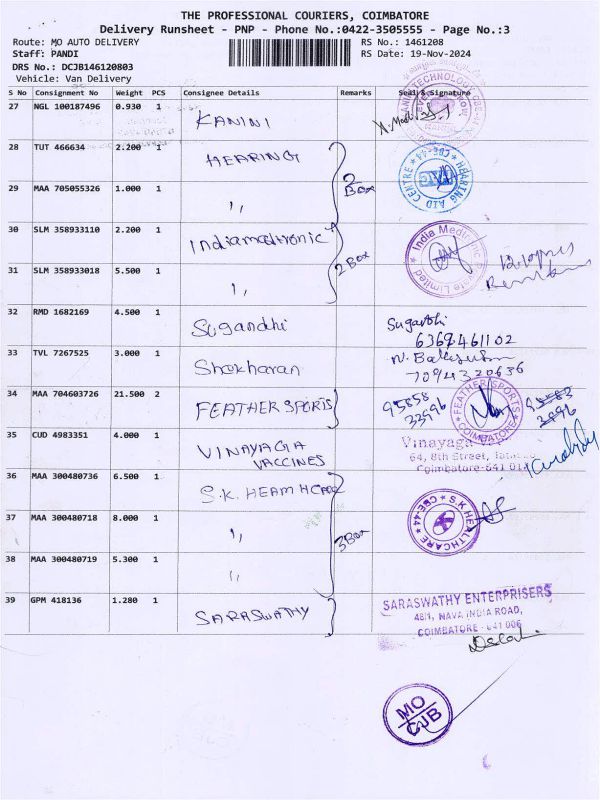 THE PROFESSIONAL COURIERS, COIMBATORE
Delivery Runsheet - PNP - Phone No.:0422-3505555 - Page No.:3
Route: MO AUTO DELIVERY RS No.: 1461208
Staff: PANDI RS Date: 19-Nov-2024
DRS No.: DCJB146120803
Vehicle: Van Delivery
S No Consignment No Weight PCS Consignee Details Remarks Seal & Signature
27 NGL 100187496 0.930 1 KANINI
28 TUT 466634 2.200 1 HEARING
CBE-44 HEARING AID CENTRE
29 MAA 705055326 1.000 1 ,, 2 Box
30 SLM 358933110 2.200 1 Indiamedtronic
India Medtronic Private Limited
31 SLM 358933018 5.500 1 ,, 2 Box
32 RMD 1682169 4.500 1 Sugandhi
6369461102
33 TVL 7267525 3.000 1 Shekharan
7094320636
34 MAA 704603726 21.500 2 FEATHER SPORTS 95858
33996
FEATHER SPORTS COIMBATORE
35 CUD 4983351 4.000 1 VINAYAGA
VACCINES
Vinayaga
64, 8th Street,
Coimbatore-641
36 MAA 300480736 6.500 1 S.K. HEAMHCARE
S.K. HEALTHCARE CBE-44
37 MAA 300480718 8.000 1 ,, 3 Box
38 MAA 300480719 5.300 1 ,,
39 GPM 418136 1.280 1 SARASWATHY
SARASWATHY ENTERPRISERS
48/1, NAVA INDIA ROAD,
COIMBATORE - 641 006
MO
CJB